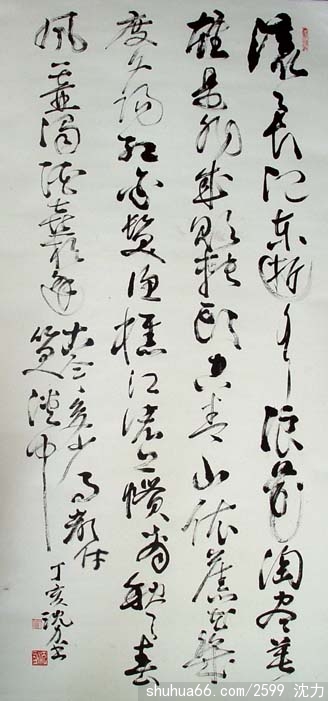 滚々長江東逝水浪花淘尽英
雄是非成敗轉頭空青山依舊在幾
度夕陽紅白髮渔樵江渚上慣看秋月春
風一壶濁酒喜相逢古今多少事都付
笑談中
丁亥沈力书
shuhua66.com/2599 沈力